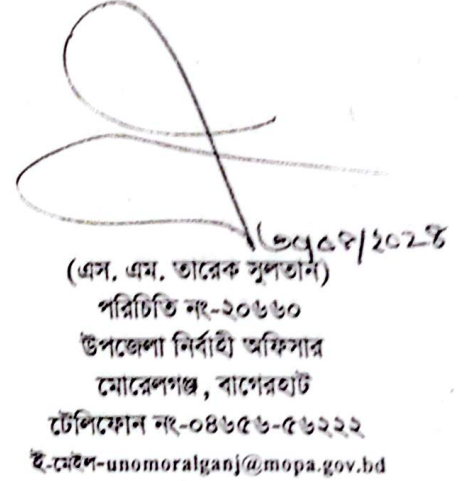 (এস. এম. তারেক সুলতান)
পরিচিতি নং-২০৬৬০
উপজেলা নির্বাহী অফিসার
মোরেলগঞ্জ, বাগেরহাট
টেলিফোন নং-০৪৬৫৬-৫৬২২২
ই-মেইল-unomoralganj@mopa.gov.bd